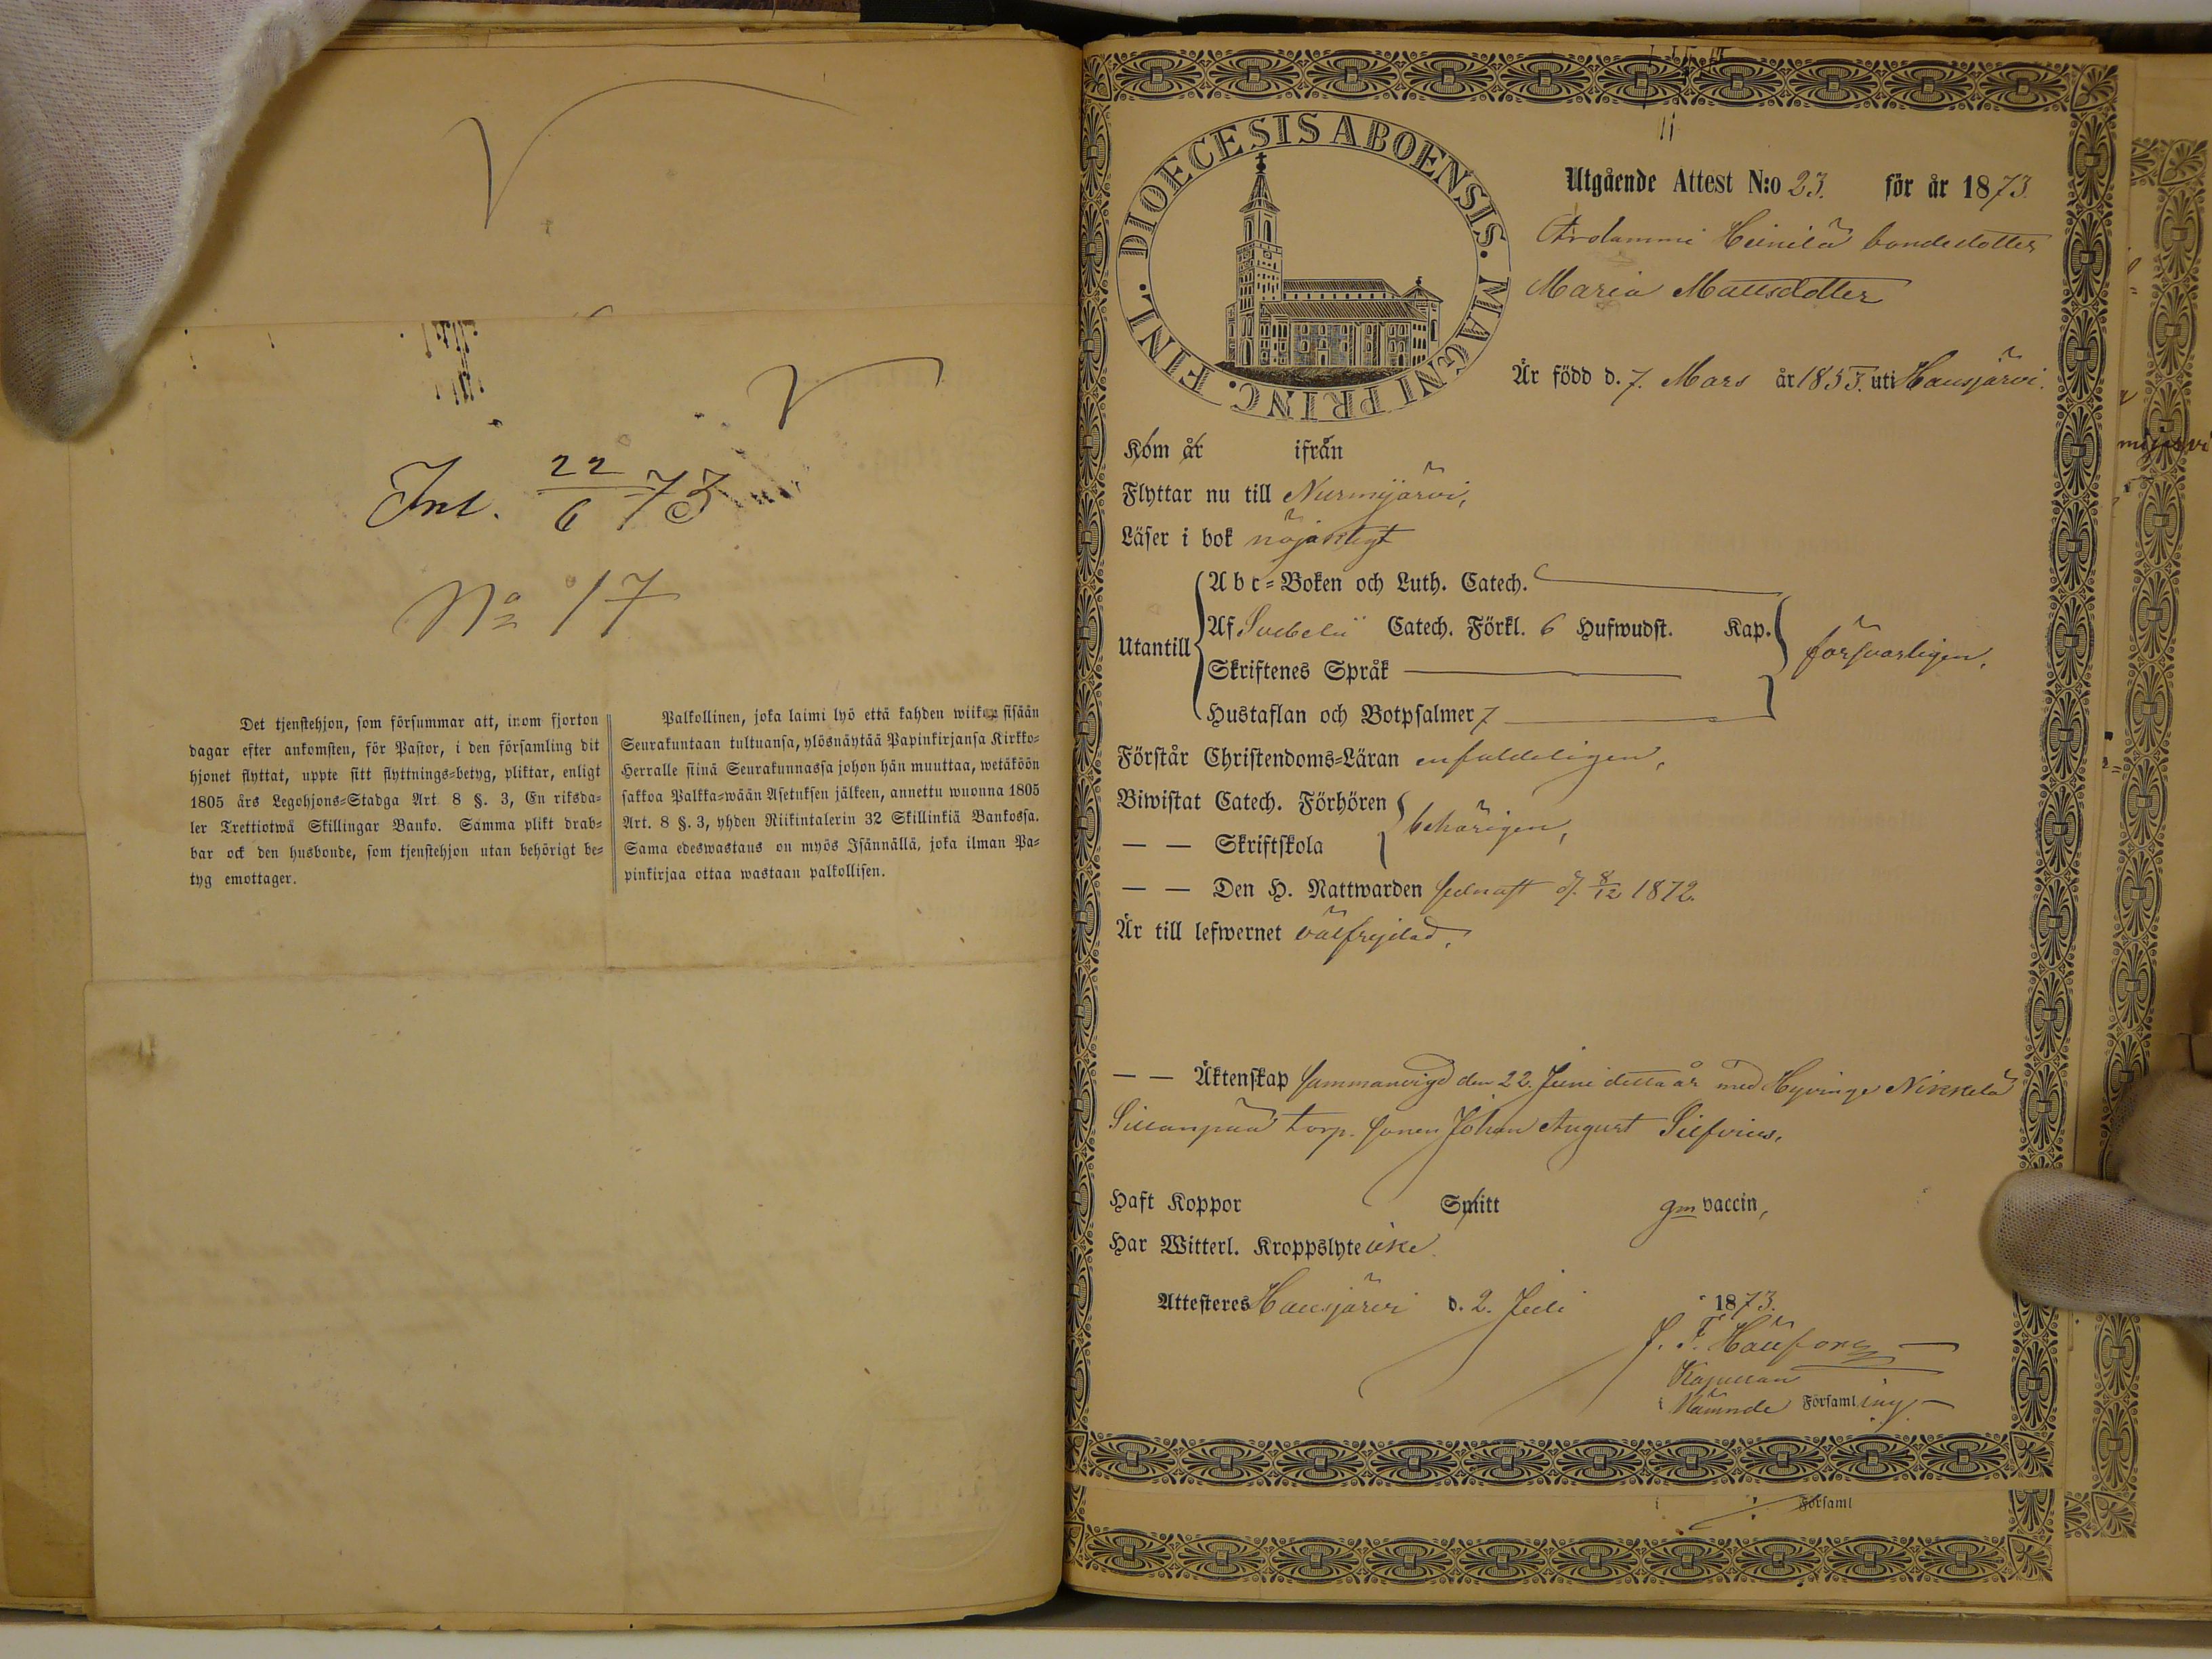 Inl. 22/6 73
No 17
Det tjenstehjon, som försummar att, inom fjorton
dagar efter ankomsten, för Pastor, i den församling dit
hjonet flyttat, uppte sitt flyttnings=betyg, pliktar, enligt
1805 års Legohjons=Stadga Art 8 §. 3, En riksda=
ler Trettiotwå Skillingar Banko. Samma plikt drab=
bar ock den husbonde, som tjenstehjon utan behörigt be=
tyg emottager.
Palkollinen, joka laimi lyö että kahden wiikon sisään
Seurakuntaan tultuansa, ylösnäytää Papinkirjansa Kirkko=
Herralle siinä Seurakunnassa johon hän muuttaa, wetäköön
sakkoa Palkka=wään Asetuksen jälkeen, annettu wuonna 1805
Art. 8 §. 3, yhden Riikintalerin 32 Skillinkiä Bankossa.
Sama edeswastaus on myös Isännällä, joka ilman Pa=
pinkirjaa ottaa wastaan palkollisen.
DIOECESIS ABOENSIS. MAGNI PRINC. FINL.
Utgående Attest N:o 23. för år 1873.
Arolammi Heinilä bondedotter
Maria Mattsdotter
Är född d. 7. Mars år 1853. uti Hausjärvi.
Kom år ifrån
Flyttar nu till Nurmijärvi,
Läser i bok nöjaktigt
Utantill
Abc=Boken och Luth. Catech.
Af Svebelii Catech. Förkl. 6 Hufwudst. Kap.
försvarligen,
Skriftenes Språk
Hustaflan och Botpsalmer 7
Förstår Christendoms=Läran enfaldeligen,
Biwistat Catech. Förhören
behörigen,
— — Skriftskola
— — Den H. Nattwarden sednast d. 8/12 1872.
Är till lefwernet välfrejdad,
— — Äktenskap sammanvigd den 22. Juni detta år med Hyvinge Nikkilä
Sillanpää torp. sonen Johan August Silfvius,
Haft Koppor Smitt gm vaccin,
Har Witterl. Kroppslyte icke.
Attesteres Hausjärvi d. 2. Juli 1873.
J. F. Hällfors
Kapellan
i Nämnde Församling
i Församl